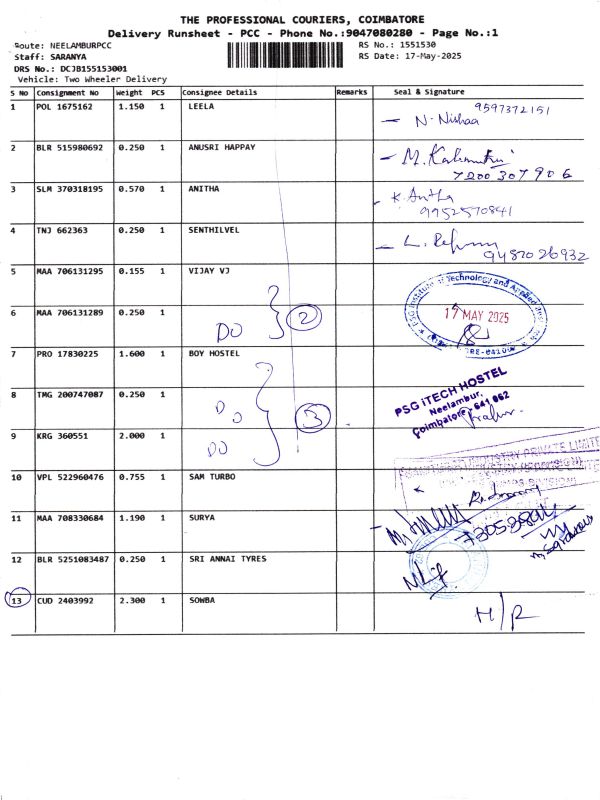 THE PROFESSIONAL COURIERS, COIMBATORE
Delivery Runsheet - PCC - Phone No.:9047080280 - Page No.:1
Route: NEELAMBURPCC
RS No.: 1551530
Staff: SARANYA
RS Date: 17-May-2025
DRS No.: DCJB155153001
Vehicle: Two Wheeler Delivery
S No Consignment No Weight PCS Consignee Details Remarks Seal & Signature
1 POL 1675162 1.150 1 LEELA 9597372151
N. Nishaa
2 BLR 515980692 0.250 1 ANUSRI HAPPAY
7200307906
3 SLM 370318195 0.570 1 ANITHA K. Anitha
9952570841
4 TNJ 662363 0.250 1 SENTHILVEL
9487026932
5 MAA 706131295 0.155 1 VIJAY VJ
PSG Institute of Technology and Applied
6 MAA 706131289 0.250 1 DO 2 17 MAY 2025
7 PRO 17830225 1.600 1 BOY HOSTEL
8 TMG 200747087 0.250 1 DO 3 PSG iTECH HOSTEL
Neelambur,
Coimbatore - 641 062
9 KRG 360551 2.000 1 DO
PRIVATE LIMITE
10 VPL 522960476 0.755 1 SAM TURBO
11 MAA 708330684 1.190 1 SURYA
12 BLR 5251083487 0.250 1 SRI ANNAI TYRES
13 CUD 2403992 2.300 1 SOWBA H/R